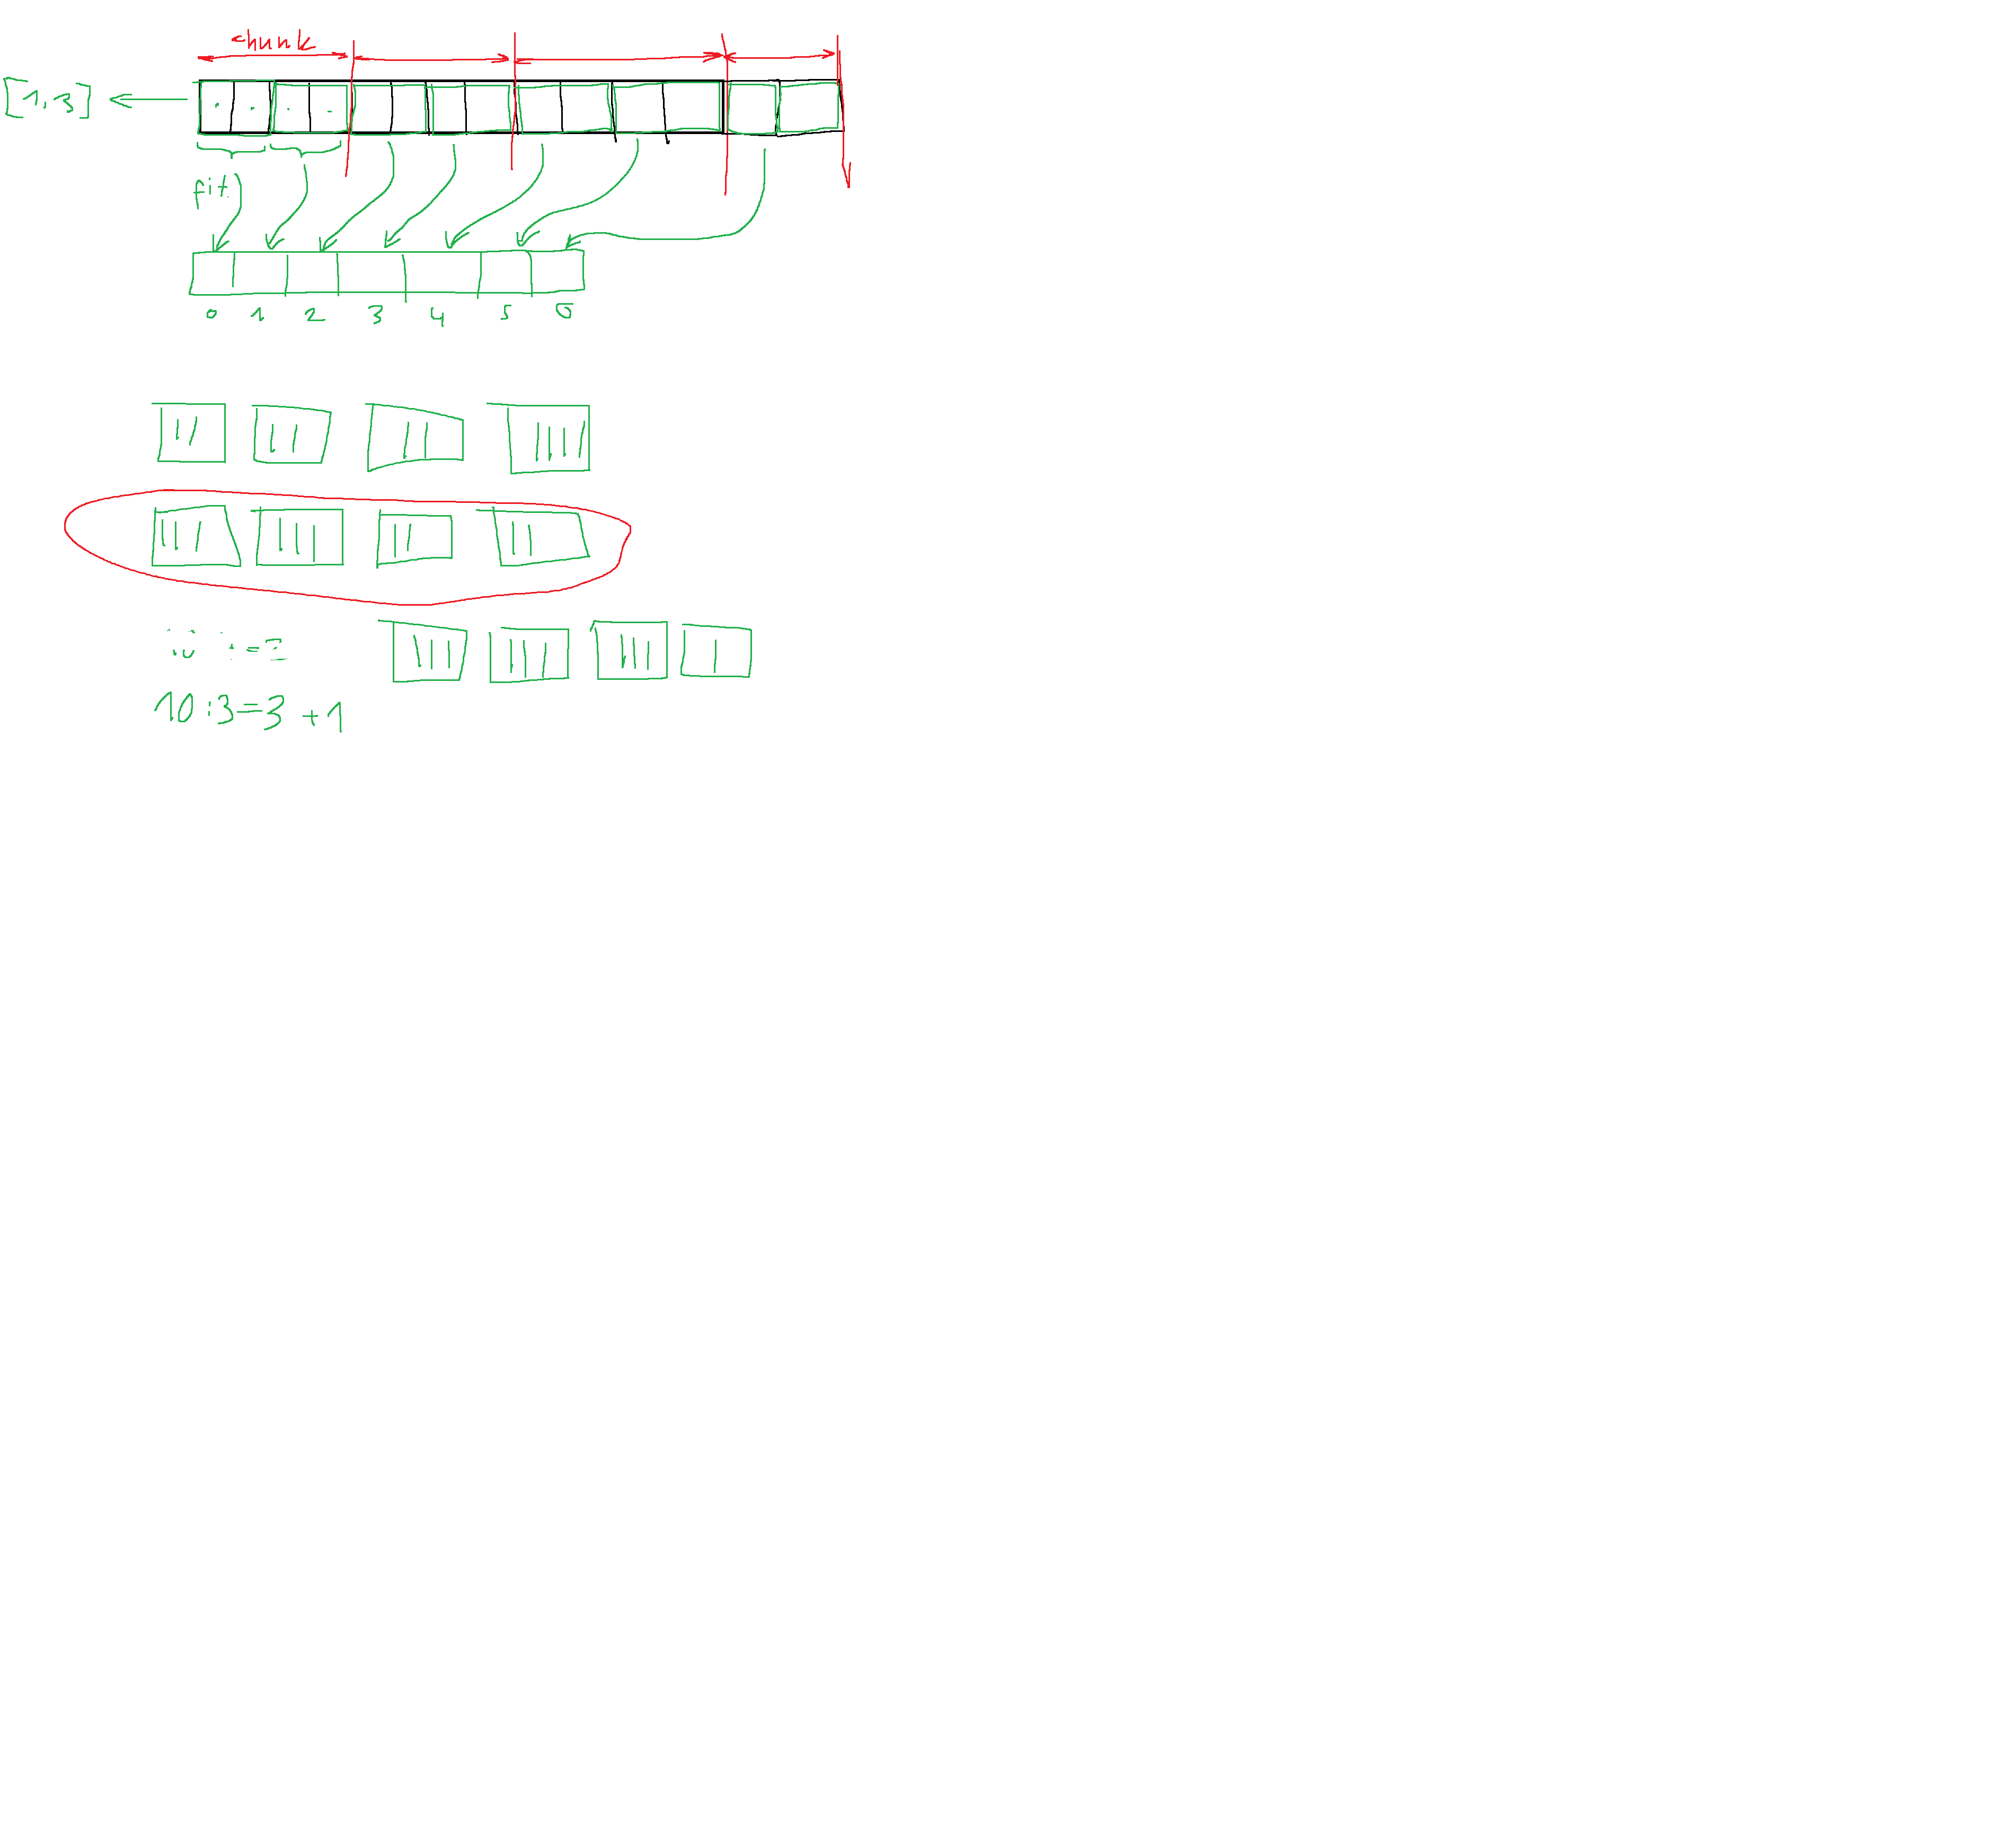 chunk
[1,3]
fit
0 1 2 3 4 5 6
10:3=3+1